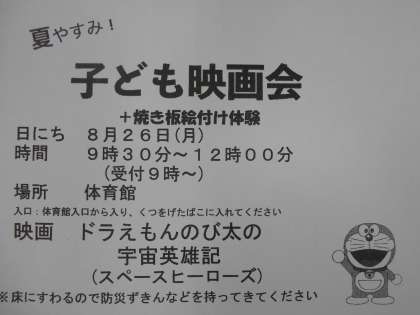 夏やすみ！
子ども映画会
＋焼き板絵付け体験
日にち　８月２６日(月)
時間　９時３０分～１２時００分
(受付９時～)
場所　体育館
入口：体育館入口から入り、くつをげたばこに入れてください
映画　ドラえもんのび太の
宇宙英雄記
(スペースヒーローズ)
※床にすわるので防災ずきんなどを持ってきてください